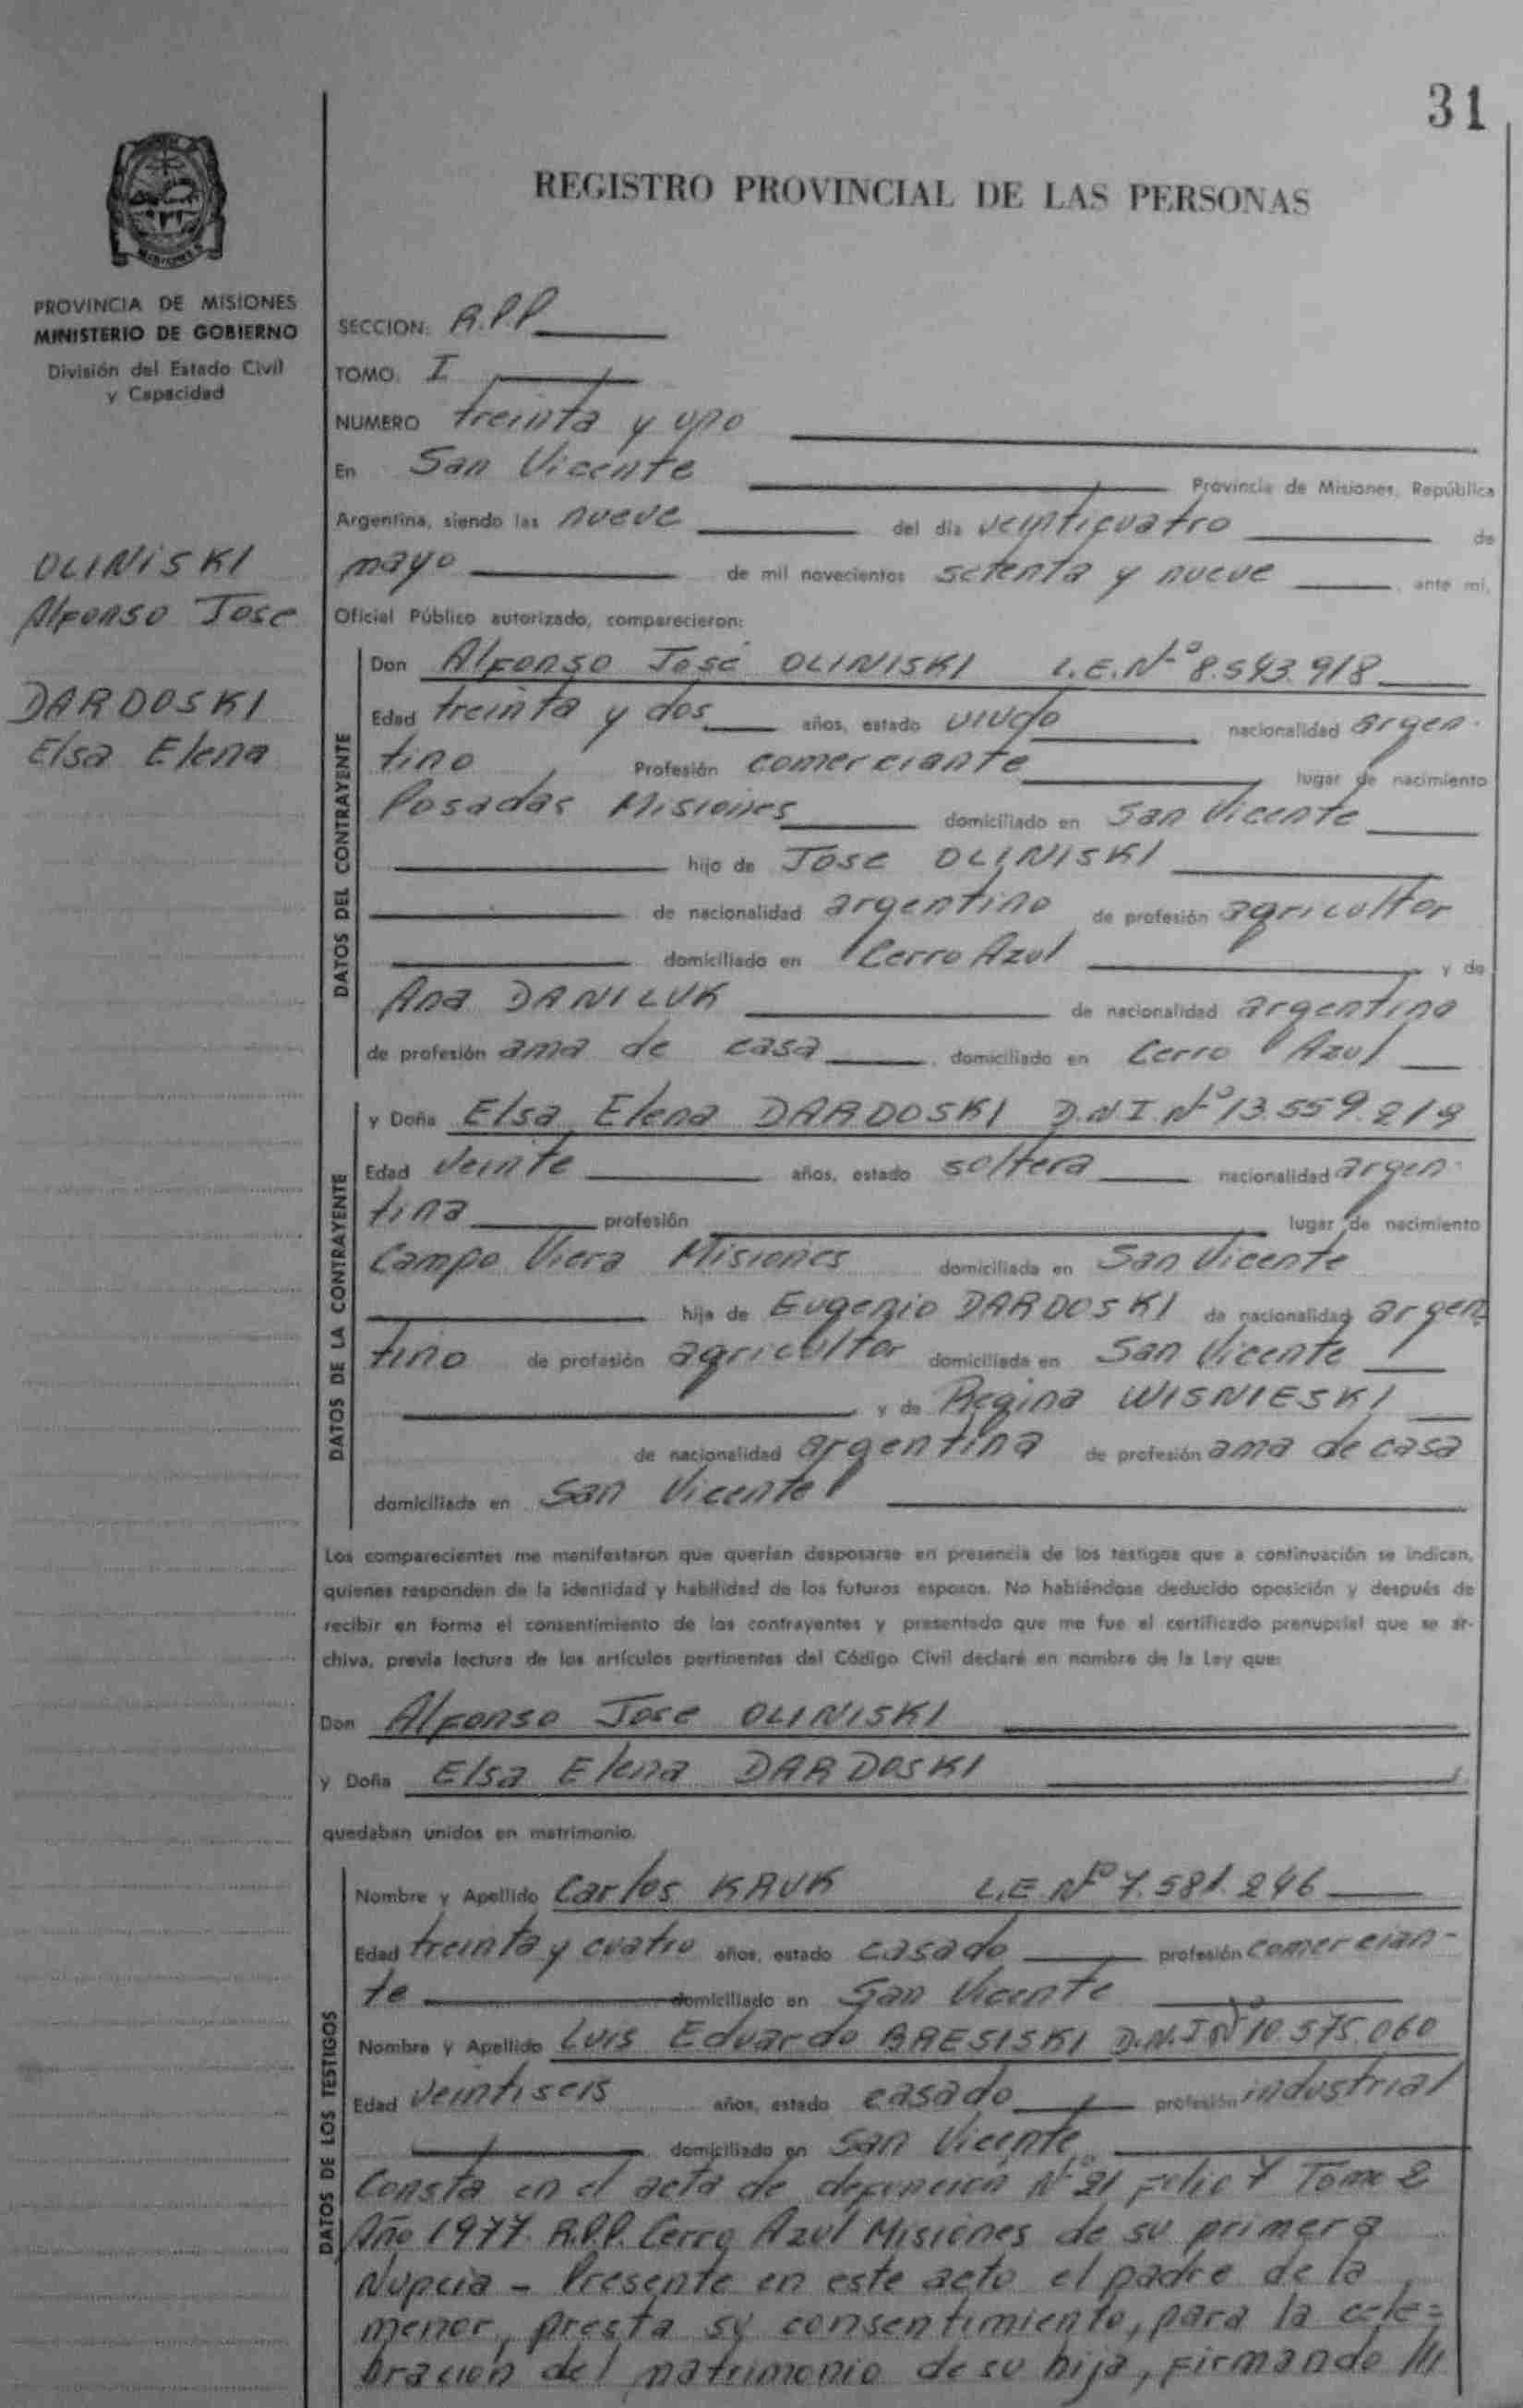 31
REGISTRO PROVINCIAL DE LAS PERSONAS
MISIONES
PROVINCIA DE MISIONES
MINISTERIO DE GOBIERNO
División del Estado Civil
y Capacidad
OLINISKI
Alfonso Jose
DARDOSKI
Elsa Elena
SECCION: R.P.P
TOMO: I
NUMERO treinta y uno
En San Vicente Provincia de Misiones, República
Argentina, siendo las nueve del día veinticuatro de
mayo de mil novecientos setenta y nueve, ante mi,
Oficial Público autorizado, comparecieron:
DATOS DEL CONTRAYENTE
Don Alfonso José OLINISKI L.E.Nº 8.543.918
Edad treinta y dos años, estado viudo nacionalidad argen-
tino Profesión comerciante lugar de nacimiento
Posadas Misiones domiciliado en San Vicente
hijo de Jose OLINISKI
de nacionalidad argentino de profesión agricultor
domiciliado en Cerro Azul y de
Ana DANILUK de nacionalidad argentina
de profesión ama de casa, domiciliado en Cerro Azul
DATOS DE LA CONTRAYENTE
y Doña Elsa Elena DARDOSKI D.N.I.Nº 13.559.219
Edad veinte años, estado soltera nacionalidad argen-
tina profesión lugar de nacimiento
Campo Viera Misiones domiciliada en San Vicente
hija de Eugenio DARDOSKI de nacionalidad argen
tino de profesión agricultor domiciliado en San Vicente
y de Regina WISNIESKI
de nacionalidad argentina de profesión ama de casa
domiciliada en San Vicente
Los comparecientes me manifestaron que querían desposarse en presencia de los testigos que a continuación se indican,
quienes responden de la identidad y habilidad de los futuros esposos. No habiéndose deducido oposición y después de
recibir en forma el consentimiento de los contrayentes y presentado que me fue el certificado prenupcial que se ar-
chiva, previa lectura de los artículos pertinentes del Código Civil declaré en nombre de la Ley que:
Don Alfonso Jose OLINISKI
y Doña Elsa Elena DARDOSKI
quedaban unidos en matrimonio.
DATOS DE LOS TESTIGOS
Nombre y Apellido Carlos KAUK L.E Nº 7.581.246
Edad treinta y cuatro años, estado casado profesión comercian-
te domiciliado en San Vicente
Nombre y Apellido Luis Eduardo BRESISKI D.N.I Nº 10.575.060
Edad veintiseis años, estado casado profesión industrial
domiciliado en San Vicente
Consta en el acta de defuncion Nº 21 Folio 7 Tomo 2
Año 1977. R.P.P. Cerro Azul Misiones de su primera
Nupcia - Presente en este acto el padre de la
menor, presta su consentimiento, para la cele=
bracion del matrimonio de su hija, firmando